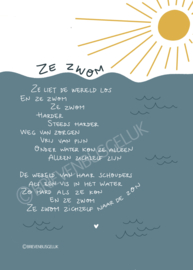 ZE ZWOM
ZE LIET DE WERELD LOS
EN ZE ZWOM
ZE ZWOM
HARDER
STEEDS HARDER
WEG VAN ZORGEN
VRIJ VAN PIJN
ONDER WATER KON ZE ALLEEN
ALLEEN ZICHZELF ZIJN
DE WERELD VAN HAAR SCHOUDERS
ALS EEN VIS IN HET WATER
ZO HARD ALS ZE KON
EN ZE ZWOM
ZE ZWOM ZICHZELF NAAR DE ZON